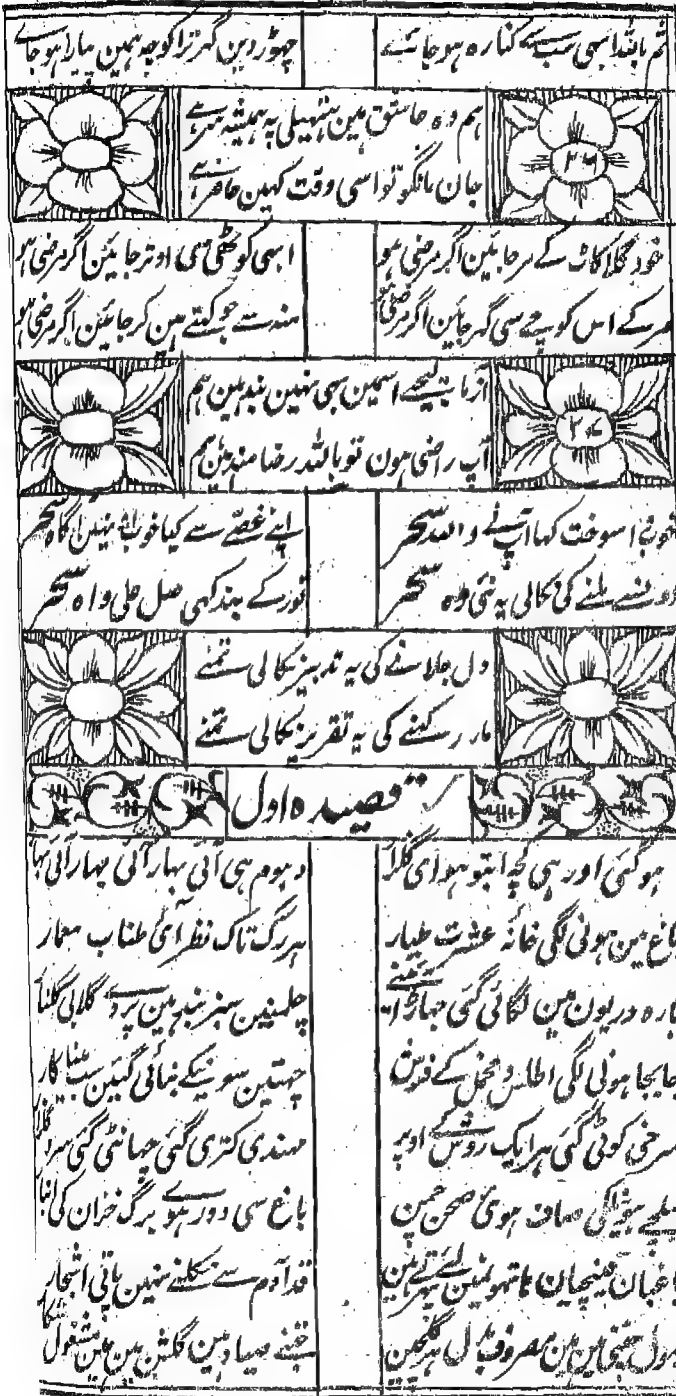 تم باللہ ابھی سب سے کنارہ ہو جائے چھوڑ دین گھر ترا کوچہ ہمین پیارا ہو جاے
ہم وہ عاشق ہین ہتھیلی پہ ہمیشہ سر ہے
جان مانگو تو اسی وقت کہین حاضر ہے
خود گلا کاٹ کے مر جائین اگر مرضی ہو ابھی کوٹھی سی اوتر جائین اگر مرضی ہو
مر کے اس کوچے سی گھر جائین اگر مرضی ہو منہ سے جو کہتے ہین کر جائین اگر مرضی ہو
آزما لیجے اسمین بھی نہین بند ہین ہم
آپ راضی ہون تو باللہ رضا مند ہین ہم
خوب واسوخت کہا آپ نے واللہ سحر اپنے غصے سے کیا خوب آگاہ سحر
جلنے کی نکالی یہ نئی راہ سحر نور کے بند کہی صل علی واہ سحر
دل جلانے کی یہ تدبیر نکالی تمنے
مار رکہنے کی یہ تقریر نکالی تمنے
قصیدہ اول
ہو گئی اور ہی کچھ ابتو ہوای گلزار دہوم ہی آئی بہار آئی بہار آئی بہار
باغ مین ہونی لگی خانہ عشرت طیار ہر رگ تاک نظر آئی طناب معمار
بارہ دریون مین لگائی گئی جہاڑ آئینے چلمنین سبز بندہین پردے گلابی گلنار
جابجا ہونی لگی اطلس و مخمل کے فرش چہتین سونیکے بنائی گئین سب مینا کار
سرخی کوٹی گئی ہر ایک روش کے اوپر مہندی کتری گئی چہانٹی گئی سرو گلزار
صاف ہوئی صحن چمن باغ سی دور ہوے برگ خزان کی انبار
باغبان قینچیان ہاتہونمین لئے پہرتے ہین قد آدم سے نکلنے نہین پاتی اشجار
پہول چننی مین ہین مصروف بدل ہر گلچین جتنے صیاد ہین گلشن مین ہین مشغول شکار